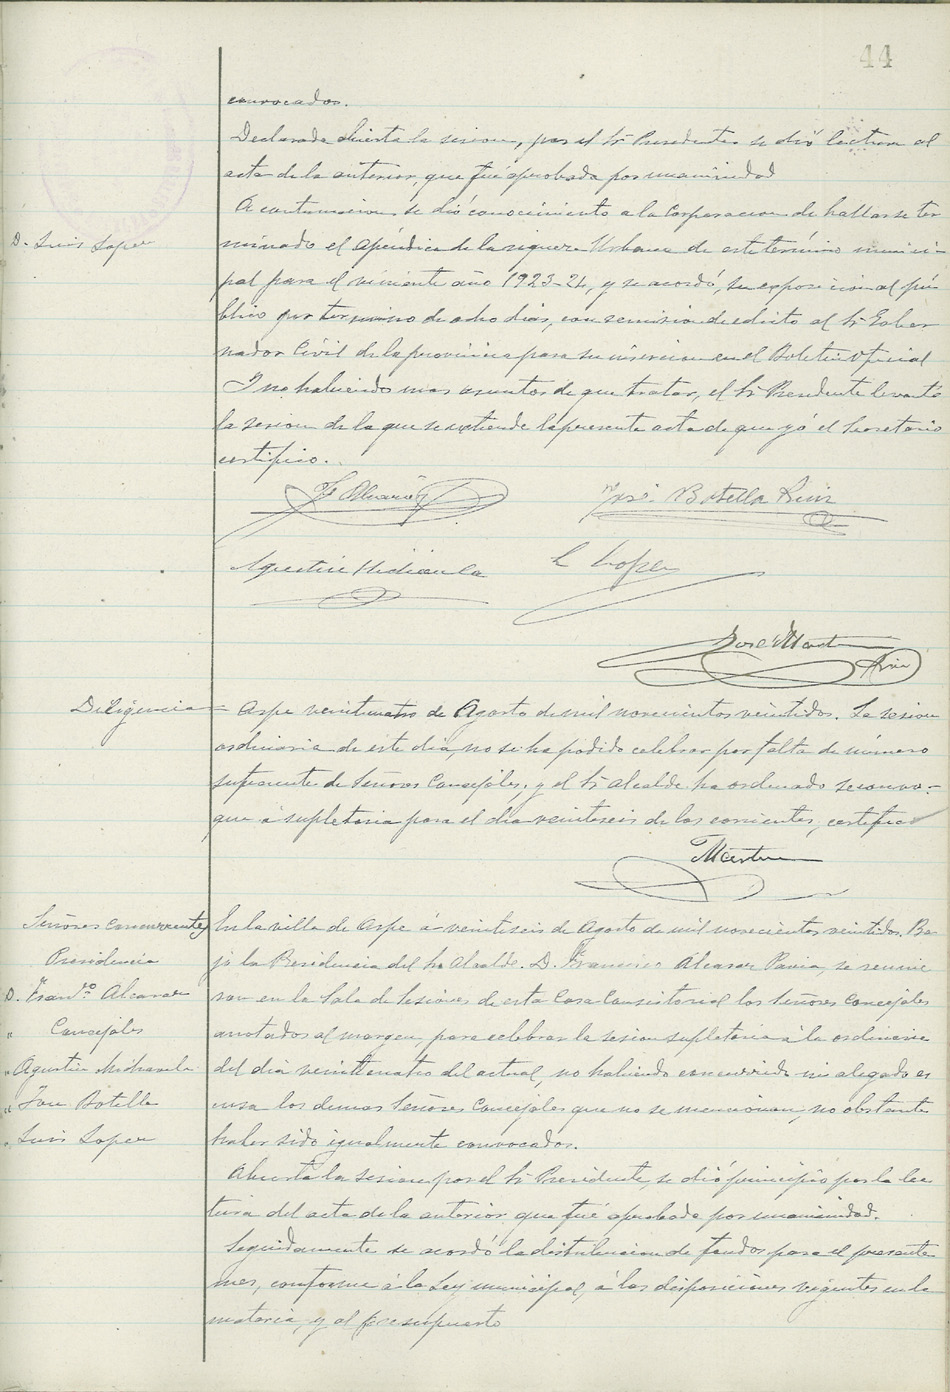 44
convocados.
Declarada abierta la sesion, por el Sr. Presidente se dió lectura al
acta de la anterior, que fué aprobada por unanimidad
A continuacion se dió conocimiento a la Corporacion de hallarse ter
D. Luis Lopez
minado el Apéndice de la riqueza Urbana de este término munici-
pal para el viniente año 1923-24, y se acordó, su exposicion al pú-
blico por termino de ocho dias, con remision de edicto al Sr. Gober
nador Civil de la provincia para su insercion en el Boletin oficial
Y no habiendo mas asuntos de que tratar, el Sr. Presidente levantó
la sesion de la que se extiende la presente acta de que yó el Secretario
certifico.
F. Alcaraz José Botella Ruiz
Agustin Midiavila L Lopez
José Martin
Diligencia - Aspe veinticuatro de Agosto de mil novecientos veintidos. La sesion
ordinaria de este dia, no se ha podido celebrar por falta de número
suficiente de Señores Concejales, y el Sr. Alcalde ha ordenado se convo-
que á supletoria para el dia veintiseis de los corrientes, certifico
Martin
Señores concurrentes
En la villa de Aspe á veintiseis de Agosto de mil novecientos veintidos. Ba-
Presidencia
jo la Presidencia del Sr. Alcalde D. Francisco Alcaraz Pavia, se reunie
D. Franco Alcaraz
ron en la Sala de Sesiones de esta Casa Consistorial los Señores Concejales
" Concejales
anotados al margen, para celebrar la sesion supletoria á la ordinaria
" Agustin Midiavila
del dia veinticuatro del actual, no habiendo concurrido ni alegado es
" José Botella
cusa los demas Señores Concejales que no se mencionan, no obstante
" Luis Lopez
haber sido igualmente convocados.
Abierta la sesion por el Sr. Presidente, se dió principio por la lec
tura del acta de la anterior que fué aprobada por unanimidad.
Seguidamente se acordó la distribucion de fondos para el presente
mes, conforme á la Ley municipal, á las disposiciones vigentes en la
materia, y al presupuesto